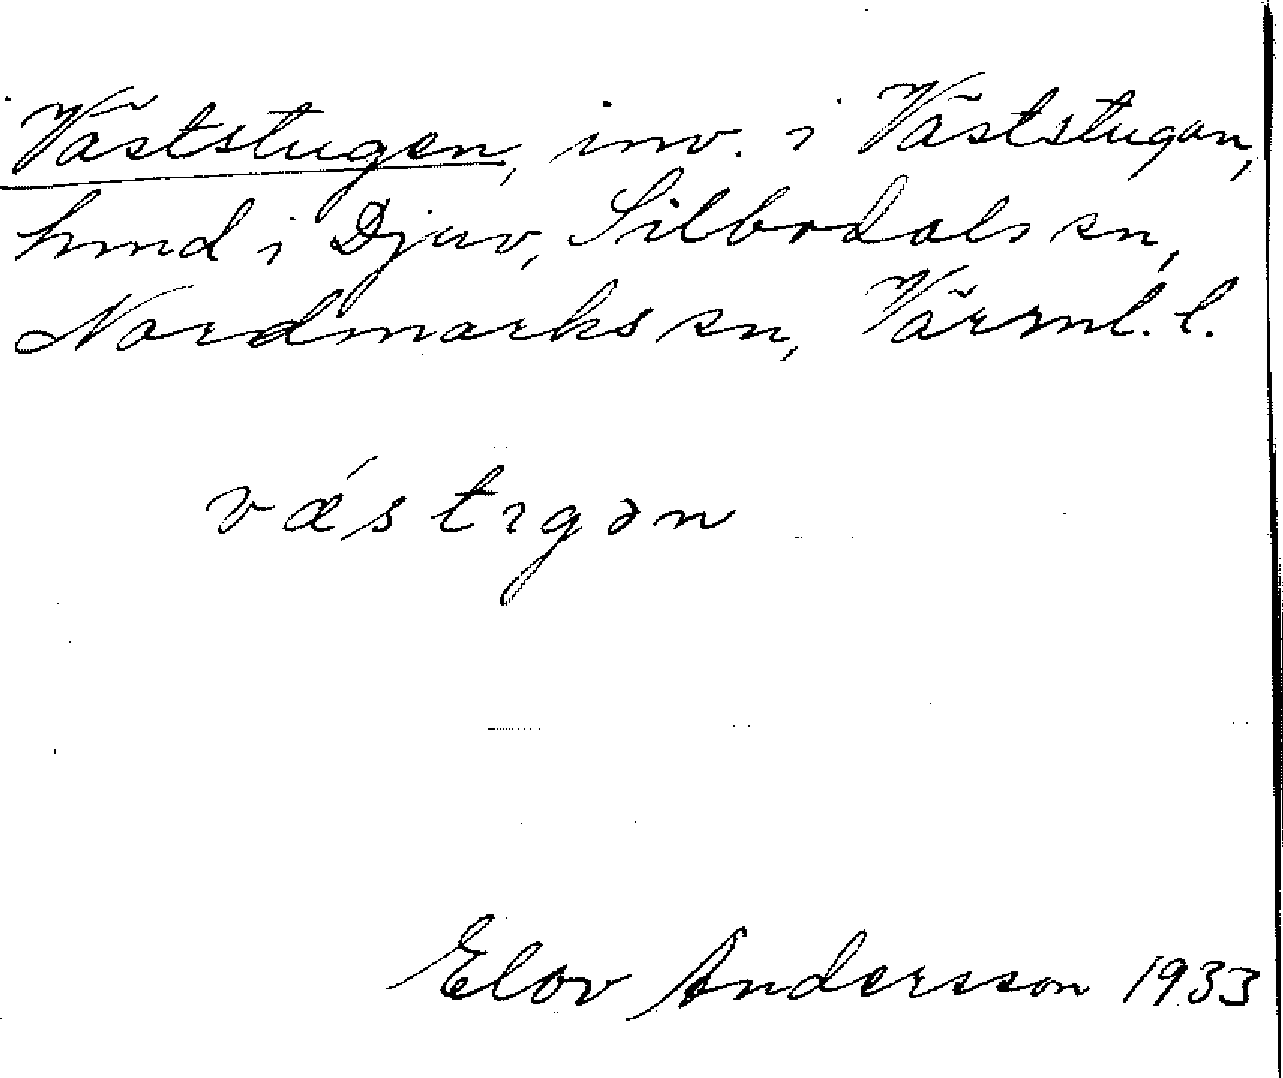 Väststugen, inv. i Väststugan,
hmd i Djuv, Silbodals sn,
Nordmarks sn, Värml. l.
vǽstıgən
Elov Andersson 1933